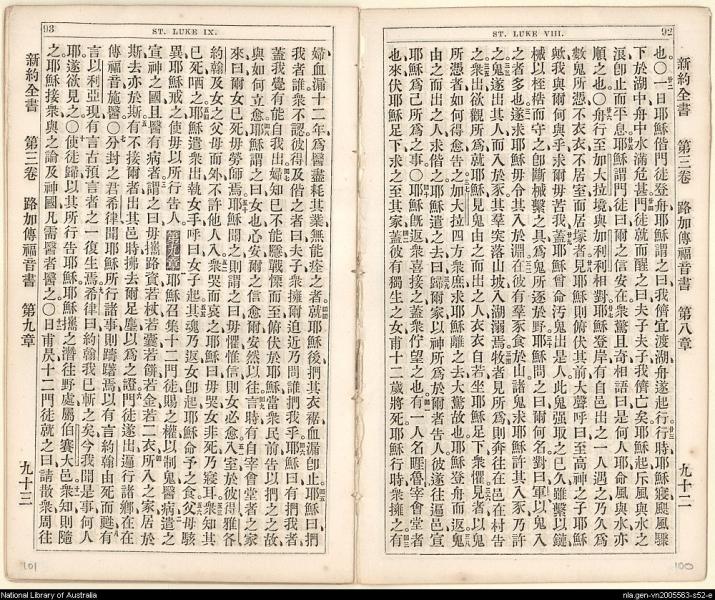 93 ST. LUKE IX.
ST. LUKE VIII. 92
新約全書 第三卷 路加傳福音書 第八章 九十二
也〇一日耶穌偕門徒登舟耶穌謂之曰我儕宜渡湖舟遂起行行時耶穌寢颶風驟
下於湖中舟中水滿危甚門徒就而醒之曰夫子夫子我儕亡矣耶穌起斥風與水之
浪卽止而平息耶穌謂門徒曰爾之信安在衆驚且奇相語曰是何人耶命風與水亦
順之也〇舟行至加大拉境與加利利相對耶穌登岸有自邑出之一人遇之乃久爲
數鬼所憑不衣衣不居室而居塚者見耶穌則俯伏其前大聲呼曰至高神之子耶穌
歟我與爾何與乎求爾毋苦我蓋耶穌曾命汚鬼出是人此鬼强取之已久雖繫以鏈
械以桎梏而守之卽斷械繫之具爲鬼所逐於野耶穌問之曰爾何名對曰軍以鬼入
之者多也遂求耶穌毋令其入於淵在彼有羣豕食於山諸鬼求耶穌許其入豕乃許
之鬼遂出其人而入於豕其羣突落山坡入湖溺焉牧者見所爲則奔往在邑在村告
之衆出欲觀所爲就耶穌見鬼由之而出之人衣衣自若坐耶穌足下衆懼見者以鬼
所憑者如何得愈告之加大拉四方衆庶求耶穌離之去大驚故也耶穌登舟而返鬼
由之而出之人求偕之耶穌遣之去曰歸爾家以神所爲於爾者告人彼遂往遍邑宣
耶穌爲己所爲之事〇耶穌旣返衆喜接之蓋衆佇望之也有一人名睚魯宰會堂者
也來伏耶穌足下求之至其家蓋彼有獨生之女甫十二歲將死耶穌行時衆擁之有
婦血漏十二年爲醫盡耗其業無能痊之者就耶穌後捫其衣裾血漏卽止耶穌曰捫
我者誰衆不認彼得及偕之者曰夫子衆擁爾迫近乃問誰捫我乎耶穌曰有捫我者
蓋我覺有能自我出婦知己不能隱戰慄而至俯伏於耶穌當衆民前告以捫之之故
與如何立愈耶穌謂之曰女也心安爾之信愈爾安然以往言時有自宰會堂者之家
來曰爾女已死毋勞師焉耶穌聞之則謂之曰毋懼惟信則女必愈入室於彼得雅各
約翰及女之父母而外不許他人入衆哭而哀之耶穌曰毋哭女非死乃寢耳衆知其
已死哂之耶穌遣衆出執女手呼曰女子起其魂乃返女卽起耶穌命予之食父母駭
異耶穌戒之使毋以所行告人 第九章 耶穌召集十二門徒賜之權以制鬼醫病遣之
宣神之國且醫有病者謂之曰毋攜路資若杖若囊若餅若金若二衣所入之家居於
斯去亦於斯有不接爾者出其邑時拂去爾足塵以爲之證門徒遂出遍行諸鄉在在
傳福音施醫〇分封之君希律聞耶穌所行諸事則躊躇焉以有言約翰由死而甦有
言以利亞現有言古預言者之一復生焉希律曰約翰我已斬之矣今我聞是事何人
耶遂欲見之〇使徒歸以其所行告耶穌耶穌攜之潛往野處屬伯賽大邑衆知則隨
之耶穌接衆與之論及神國凡需醫者醫之〇日甫昃十二門徒就之曰請散衆周往
新約全書 第三卷 路加傳福音書 第九章 九十三
101
100
National Library of Australia
nla.gen-vn2005563-s52-e